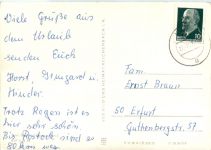 Viele Grüße aus
dem Urlaub
senden Euch
Horst, Irmgard u.
Kinder.
Trotz Regen ist es
hier sehr schön.
Bis Rostock sind es
80 km
Fam.
Ernst Braun
50 Erfurt
Guttenbergstr. 57